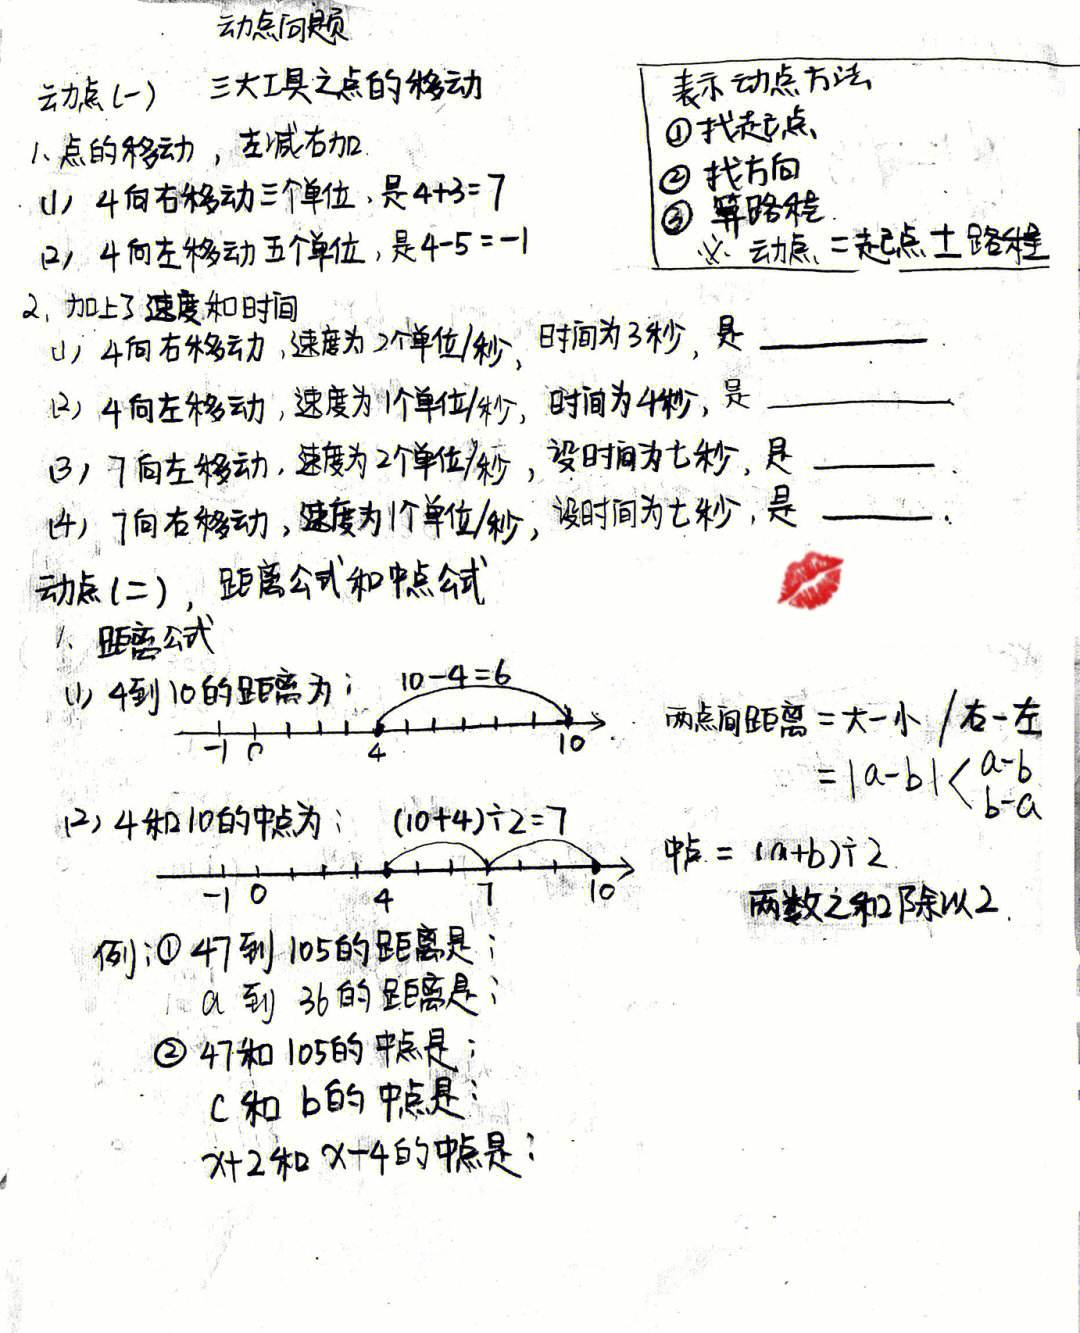 动点问题
动点(一) 三大工具之点的移动
1、点的移动，左减右加.
(1) 4向右移动三个单位，是4+3=7
(2) 4向左移动五个单位，是4-5=-1
表示动点方法
① 找起点
② 找方向
③ 算路程
※ 动点=起点±路程
2、加上了速度和时间
(1) 4向右移动，速度为2个单位/秒，时间为3秒，是
(2) 4向左移动，速度为1个单位/秒，时间为4秒，是
(3) 7向左移动，速度为2个单位/秒，设时间为七秒，是
(4) 7向右移动，速度为1个单位/秒，设时间为七秒，是
动点(二)，距离公式和中点公式
1、距离公式
(1) 4到10的距离为： 10-4=6
-1 0 4 10
两点间距离=大-小/右-左
=|a-b|< a-b
b-a
(2) 4和10的中点为： (10+4)÷2=7
-1 0 4 7 10
中点=(a+b)÷2
两数之和除以2.
例：① 47到105的距离是：
a到36的距离是：
② 47和105的中点是：
c和b的中点是：
x+2和x-4的中点是：